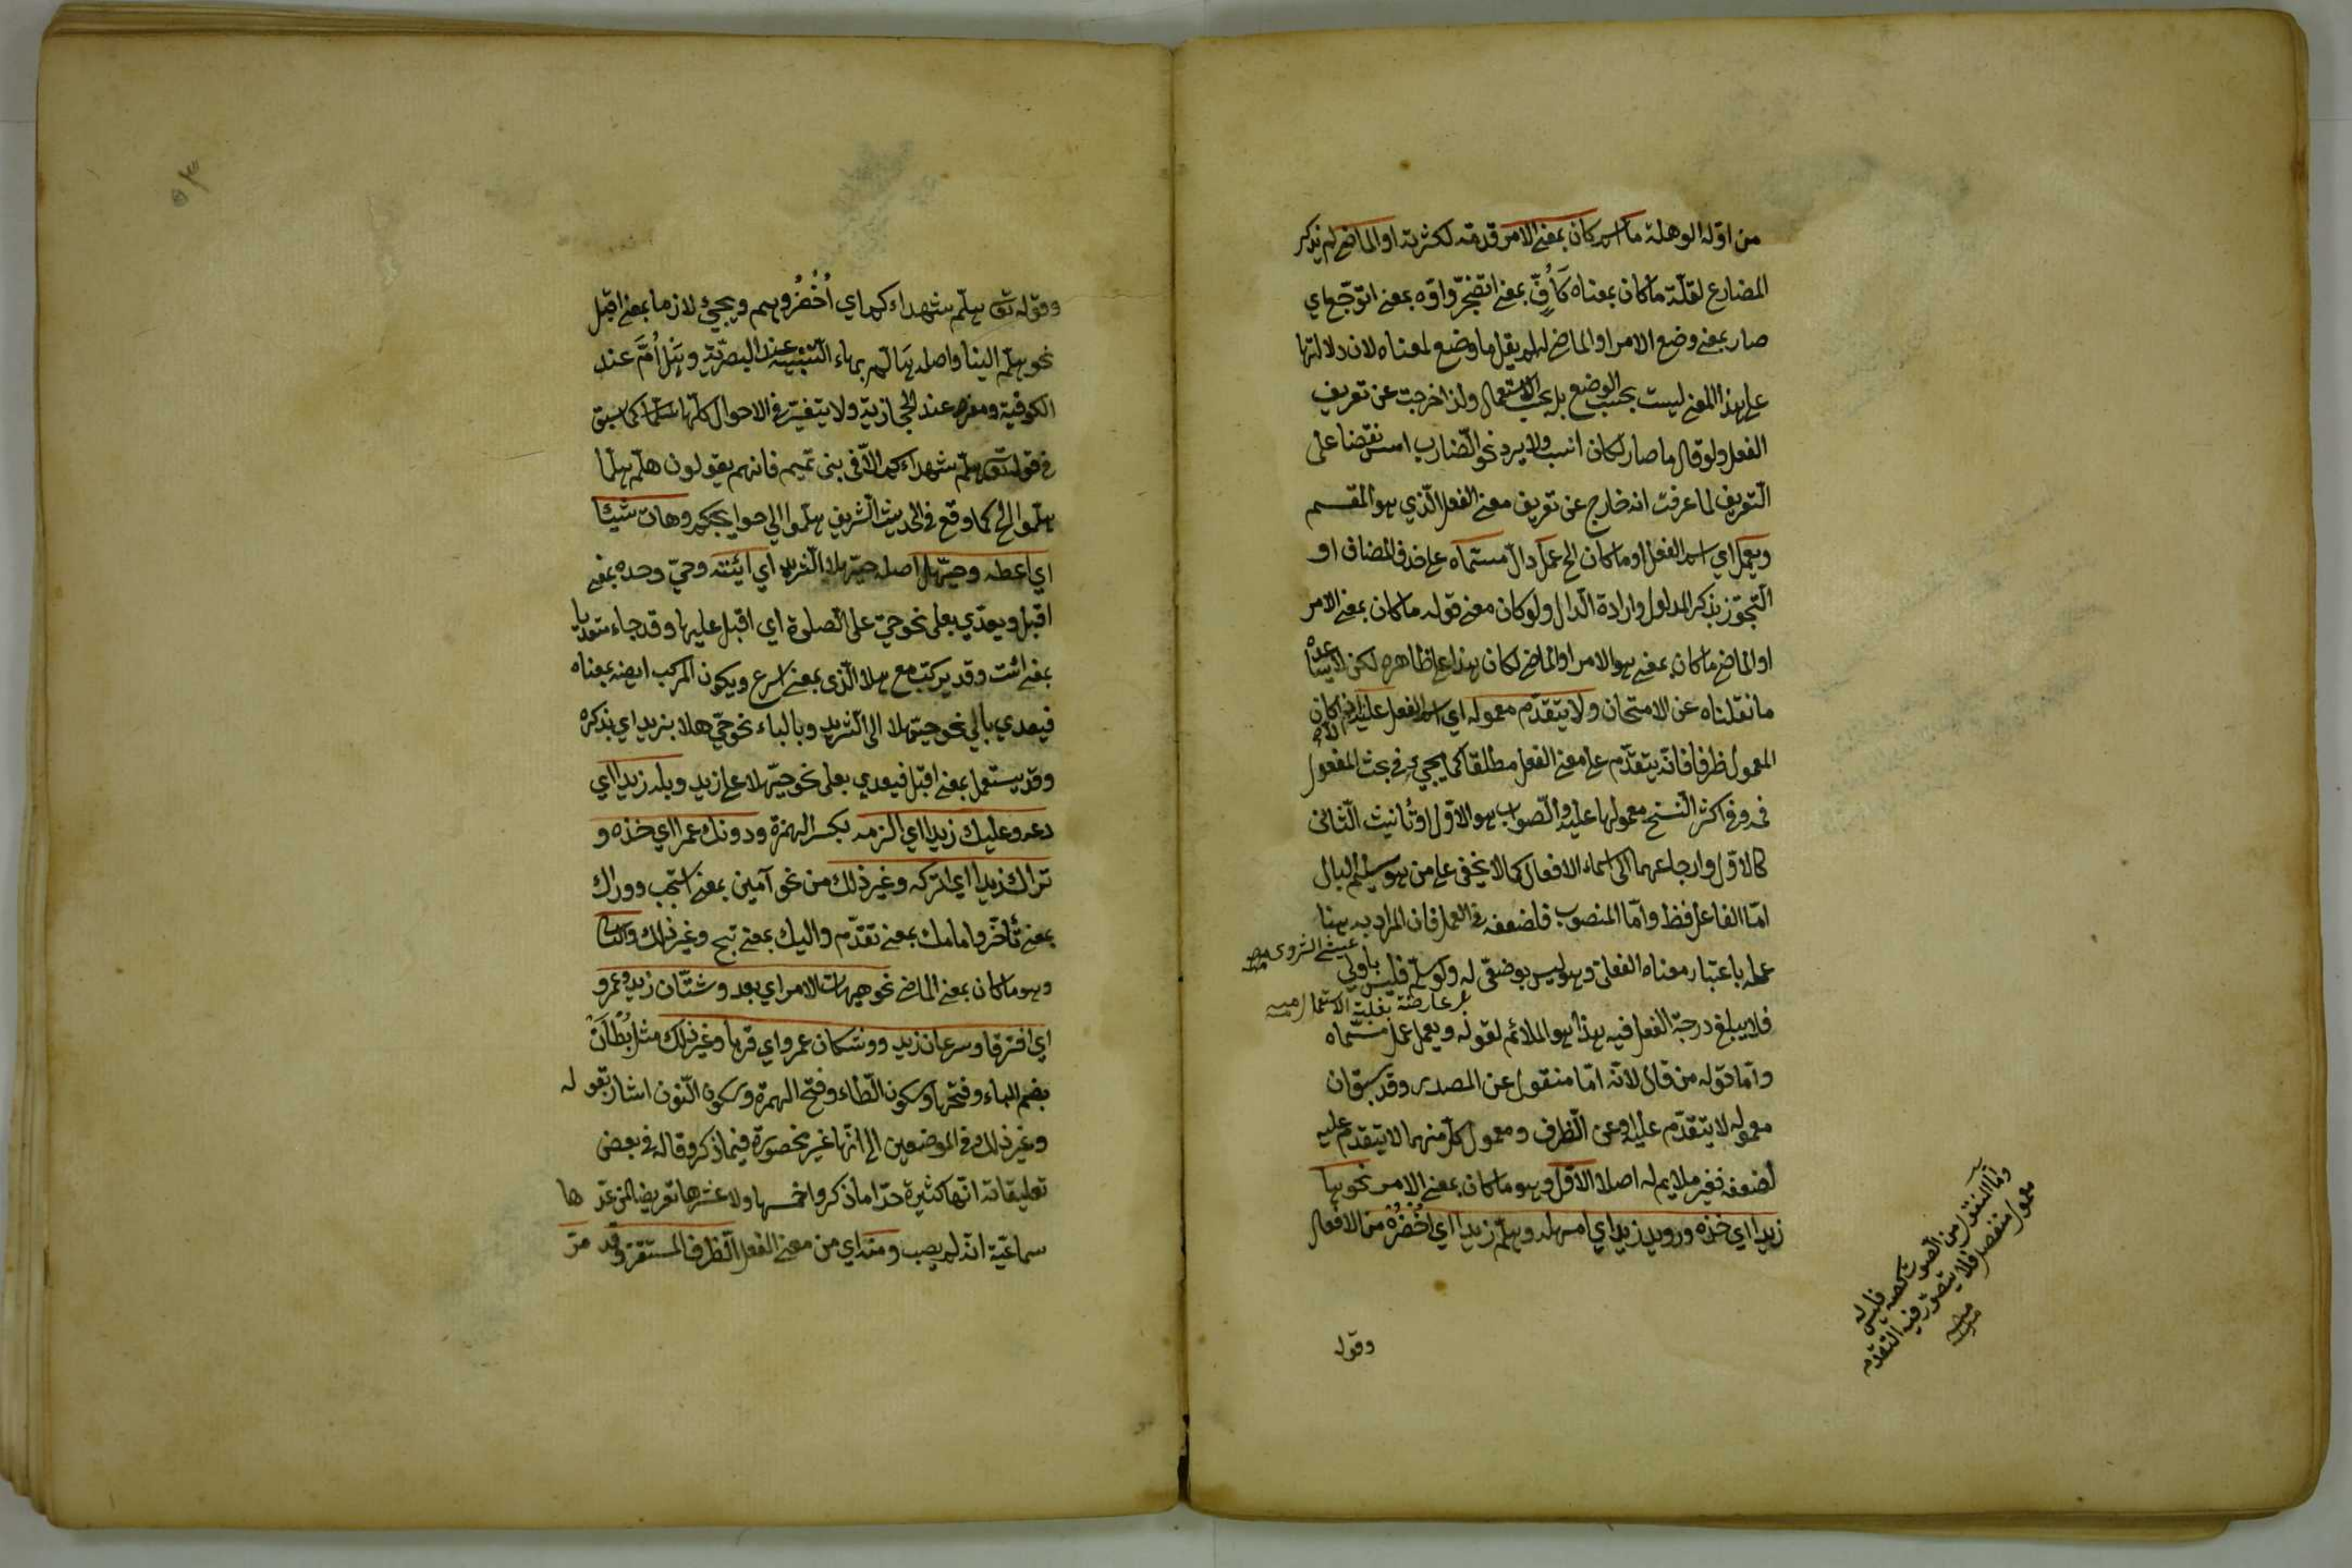 من اوّل الوهلة ما اسم كان بمعنى الامر قدمه لكثرته او الماضى لم يذكر
المضارع لقلّة ما كان بمعناه كَاُفٍّ بمعنى اتضجّر واوّه بمعنى اتوجّع اي
صار بمعنى وضع الامر او الماضى له لم يقل ما وضع لمعناه لان دلالتها
على هذا المعنى ليست بحسب الوضع بل بحسب الاستعمال ولذا خرجت عن تعريف
الفعل ولو قال ما صار لكان انسب ولا يرد نحو الضارب امس نقضا على
التعريف لما عرفت انه خارج عن تعريف معنى الفعل الذي هو المقسم
ويعمل اي اسم الفعل او ما كان الخ عمل دالّ مسمّاه على حذف المضاف او
التجوّز بذكر المدلول وارادة الدال ولو كان معنى قوله ما كان بمعنى الامر
او الماضى ما كان بمعنى هو الامر او الماضى لكان هذا على ظاهره لكن لا يساعده
ما نقلناه عن الامتحان ولا يتقدّم معموله اي اسم الفعل عليه كان
المعمول ظرفا فانه يتقدّم على معنى الفعل مطلقا كما يجيء في بحث المفعول
فيه وفي اكثر النسخ معمولها عليه والصواب هو الاوّل او تأنيث الثاني
كالاوّل وارجاعهما الى اسماء الافعال كما لا يخفى على من هو سليم البال
امّا الفاعل فظ وامّا المنصوب فلضعفه في العمل فان المراد به هنا
عمله باعتبار معناه الفعلى وهو ليس بوضعى له ولو سلّم فليس باولى
فلا يبلغ درجة الفعل فيه هذا هو الملائم لقوله ويعمل عمل مسمّاه
وامّا قوله من قال لانه امّا منقول عن المصدر وقد سبق ان
معموله لا يتقدّم عليه او عن الظرف ومعمول كلّ منهما لا يتقدم عليه
لضعفه فغير ملايم له اصلا الاوّل وهو ما كان بمعنى الامر نحو ها
زيدا اي خذه ورويد زيدا اي امهله وهلمّ زيدا اي اُحْضُرْه من الافعال
بمعارضة بغلبة الاستعمال منه
وامّا المنقول من الصوت كصه فليس له
معمول منفصل فلا يتصوّر فيه التقدّم
منه
وقوله
٥٣
وقوله تع هلمّ شهداءكم اي اُحْضُروهم ويجيئ لازما بمعنى اقبل
نحو هلمّ الينا واصله هَا لُمّ بهاء التنبيه عند البصريّة وهَلْ اُمَّ عند
الكوفية ومفرد عند الحجازية ولا يتغيّر في الاحوال كلّها كما سبق
في قوله تع هلمّ شهداءكم الّا في بنى تميم فانهم يقولون هلمّ هلمّا
هلمّوا الخ كما وقع في الحديث الشريف هلمّوا الى حوايجكم وهات شيئا
اي اعطه وحيّهل اصله حيّ هلا الثريد اي ائته وحيّ وحده بمعنى
اقبل ويعدّي بعلى نحو حيّ على الصلوة اي اقبل عليها وقد جاء متعديا
بمعنى ائت وقد يركب مع هلا الّذى بمعنى اسرع ويكون المركب ايضه بمعناه
فيعدي بالى نحو حيّهلا الى الثريد وبالباء نحو حيّ هلا بزيد اي بذكره
وقد يستعمل بمعنى اقبل فيعدي بعلى نحو حيّهلا على زيد وبله زيدا اي
دعه وعليك زيدا اي الزمه بكسر الهمزة ودونك عمرا اي خذه و
تراك زيدا اي اتركه وغير ذلك من نحو آمين بمعنى استجب ووراك
بمعنى تأخّر وامامك بمعنى تقدّم واليك بمعنى تنح وغير ذلك والثانى
وهو ما كان بمعنى الماضى نحو هيهات الامر اي بعد وشتّان زيد وعمرو
اي افترقا وسرعان زيد ووشكان عمرو اي قربا وغير ذلك مثل بُطْآنَ
بضم الباء وفتحها وسكون الطاء وفتح الهمزة وسكون النون اشار بقوله
وغير ذلك في الموضعين الى انّها غير محصورة فيما ذكر وقال في بعض
تعليقاته انّها كثيرة جدّا ما ذكروا خمسها ولا عشرها تعريضا لمن عدّها
سماعيّة انّه لم يصب ومنه اي من معنى الفعل الظرف المستقر وقد مرّ